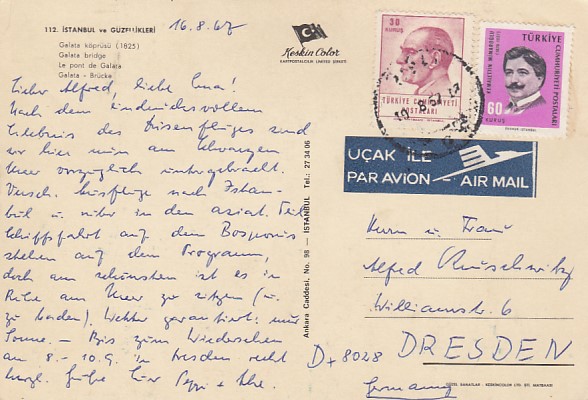 112. İSTANBUL ve GÜZELLİKLERİ
Galata köprüsü (1825)
Galata bridge
Le pont de Galata
Galata - Brücke
16.8.67
Keskin Color
KARTPOSTALCILIK LIMITED ŞİRKETİ
30
KURUŞ
TÜRKİYE CUMHURİYETİ
POSTALARI
TÜRKİYE
CUMHURİYETİ POSTALARI
60
KURUŞ
UÇAK İLE
PAR AVION AIR MAIL
Lieber Alfred, liebe Erna!
Nach dem eindrucksvollen
Erlebnis des Düsenfluges sind
wir hier nun am Schwarzen
Meer vorzüglich untergebracht.
Versch. Ausflüge nach Istan-
bul u. rüber in den asiat. Teil
Schiffsfahrt auf dem Bosporus
stehen auf dem Programm,
doch am schönsten ist es in
Ruhe am Meer zu sitzen (u.
zu baden). Wetter garantiert: nur
Sonne. – Bis zum Wiedersehen
am 8.-10.9. in Dresden recht
herzl. Grüße Eure
Ankara Caddesi, No. 98 — İSTANBUL Tel.: 27 34 06
Herrn u. Frau
Alfred
6
D-8028 DRESDEN
Germany